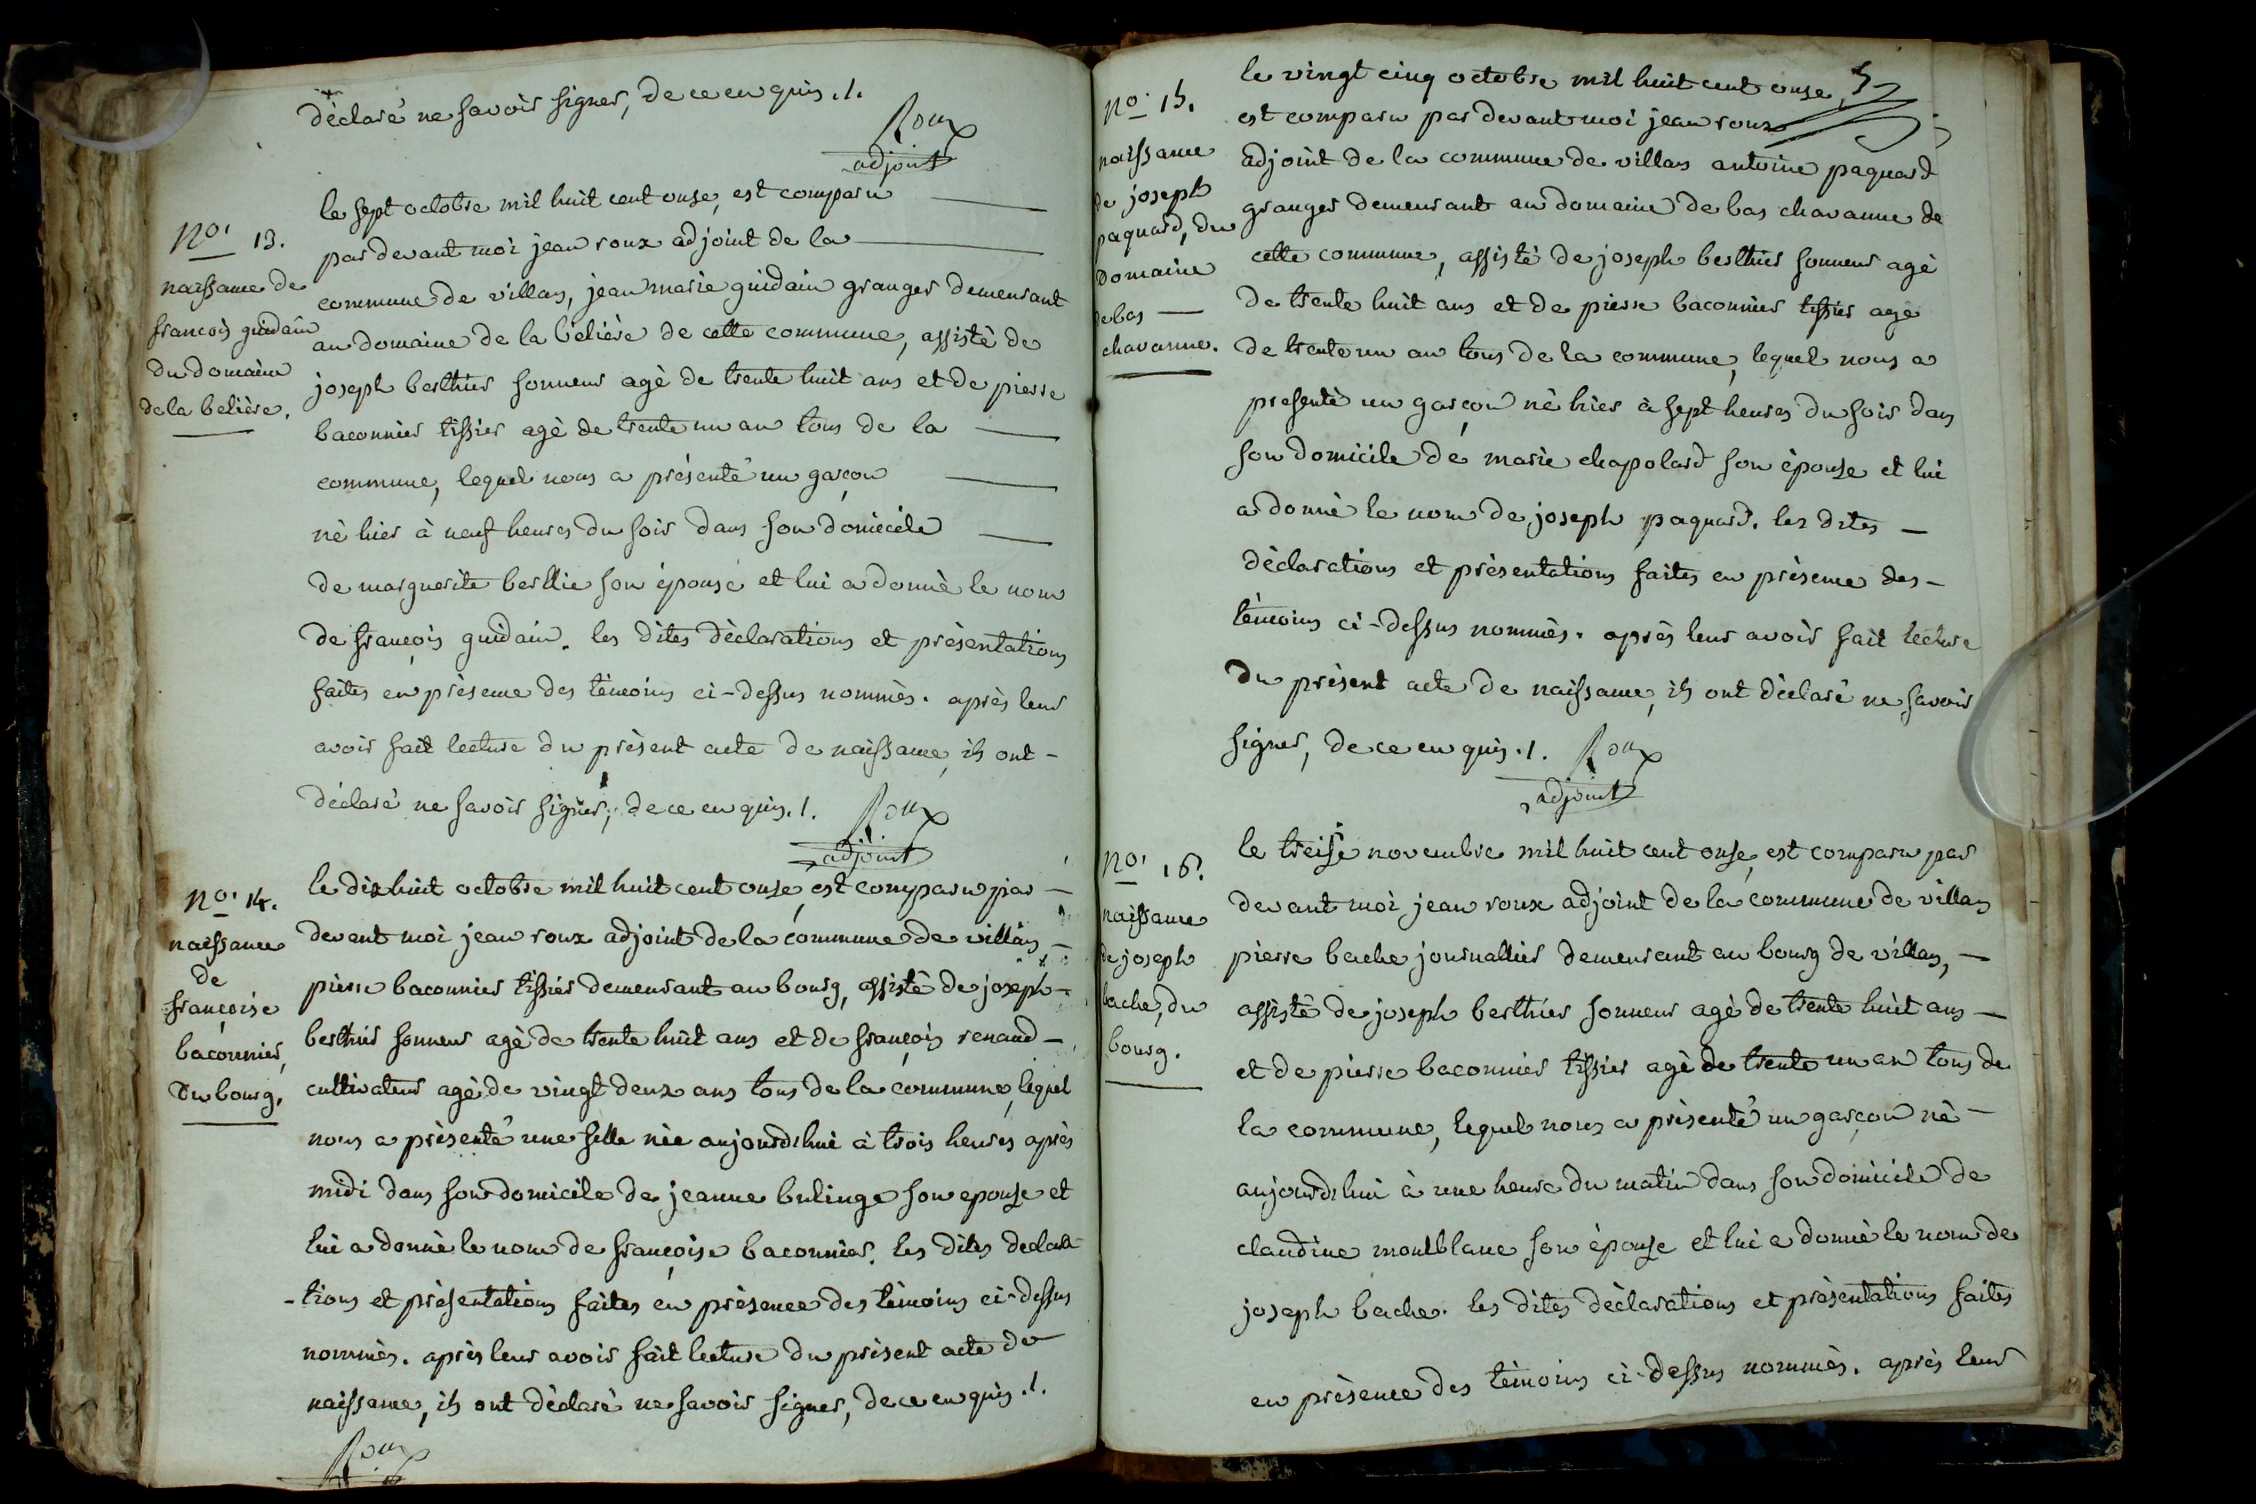 déclaré ne savoir signer, de ce enquis ./.
Roux
adjoint
no. 13.
naissance de
francois guidain
du domaine
de la beliére.
le sept octobre mil huit cent onse, est comparu
par devant moi jean roux adjoint de la
commune de villars, jean marie guidain granger demeurant
au domaine de la béliére de cette commune, assisté de
joseph berthier sonneur agé de trente huit ans et de pierre
baconnier tissier agé de trente un an tous de la
commune, lequel nous a présenté un garçon
né hier à neuf heures du soir dans son domicile
de marguerite berllie son épouse et lui a donné le nom
de françois guidain. les dites déclarations et présentations
faites en présence des témoins ci-dessus nommés. après leur
avoir fait lecture du présent acte de naissance, ils ont -
déclaré ne savoir signer, de ce enquis ./.
Roux
adjoint
no. 14.
naissance
de
françoise
baconnier,
du bourg.
le dix huit octobre mil huit cent onse, est comparu par -
devant moi jean roux adjoint de la commune de villars -
pierre baconnier tissier demeurant au bourg, assisté de joseph -
berthier sonneur agé de trente huit ans et de françois renaud -
cultivateur agé de vingt deux ans tous de la commune, lequel
nous a présenté une fille née aujourd'hui à trois heures après
midi dans son domicile de jeanne bulinge son epouse et
lui a donné le nom de françoise baconnier. les dites declara
-tions et présentations faites en présence des témoins ci-dessus
nommés. après leur avoir fait lecture du présent acte de
naissance, ils ont déclaré ne savoir signer, de ce enquis ./.
Roux
no. 15.
naissance
de joseph
paquard, du
domaine
de bas
chavanne.
le vingt cinq octobre mil huit cent onse,
est comparu par devant moi jean roux
adjoint de la commune de villars antoine paquard
granger demeurant au domaine de bas chavanne de
cette commune, assisté de joseph berthier sonneur agé
de trente huit ans et de pierre baconnier tissier agé
de trente un an tous de la commune, lequel nous a
presenté un garçon né hier à sept heures du soir dans
son domicile de marie chapolard son épouse et lui
a donné le nom de joseph paquard. les dites -
déclarations et présentations faites en présence des -
témoins ci-dessus nommés. après leur avoir fait lecture
du présent acte de naissance, ils ont déclaré ne savoir
signer, de ce enquis ./.
Roux
adjoint
no. 16.
naissance
de joseph
bache, du
bourg.
le treise novembre mil huit cent onse, est comparu par
devant moi jean roux adjoint de la commune de villars
pierre bache journallier demeurant au bourg de villars, -
assisté de joseph berthier sonneur agé de trente huit ans -
et de pierre baconnier tissier agé de trente un an tous de
la commune, lequel nous a présenté un garçon né -
aujourd'hui à une heure du matin dans son domicile de
claudine montblanc son épouse et lui a donné le nom de
joseph bache. les dites déclarations et présentations faites
en présence des témoins ci-dessus nommés. après leur